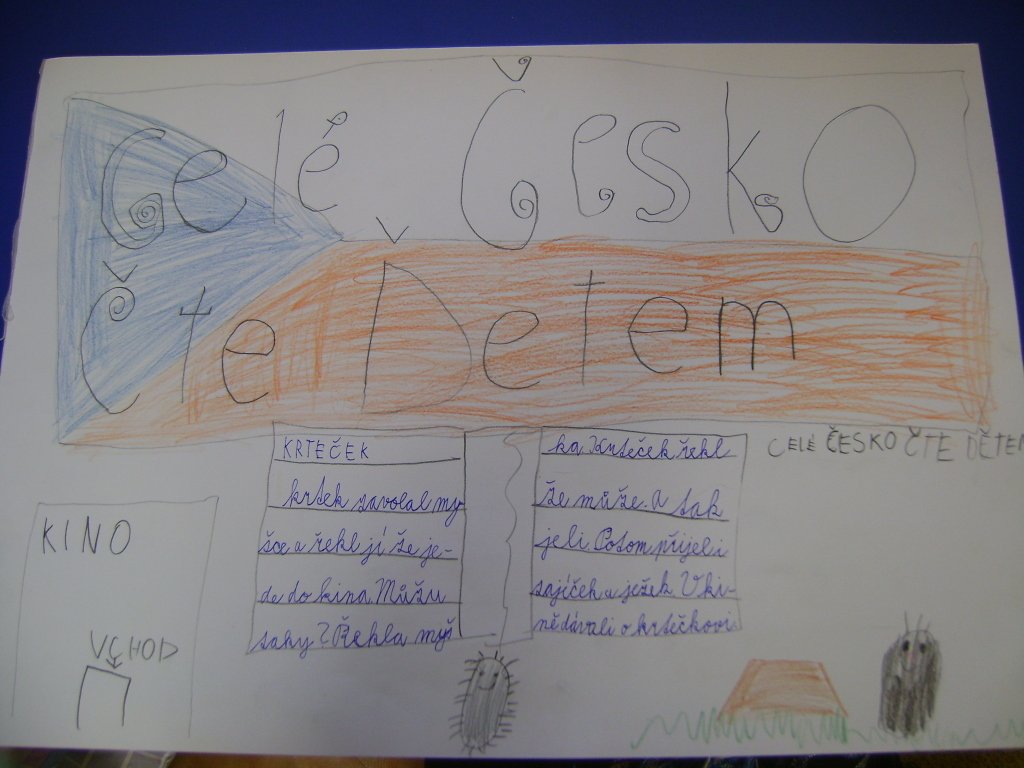 Celé Česko
Čte Dětem
CELÉ ČESKO ČTE DĚTEM
KRTEČEK
krtek zavolal my-
šce a řekl jí že je-
de do kina Můžu
taky? Řekla myš
ka Krteček řekl
že může. A tak
jeli Potom přijeli
zajíček a ježek V ki-
ně dávali o krtečkovi
KINO
VCHOD